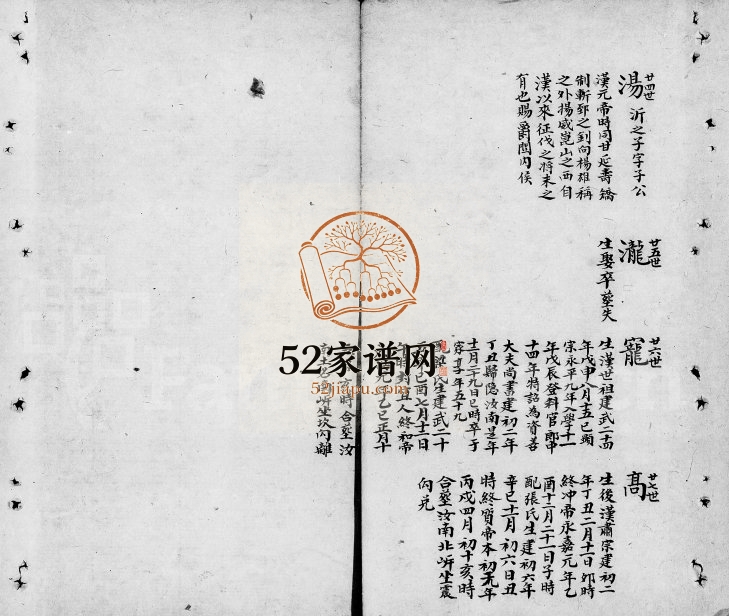 廿四世
湯 沂之子字子公
漢元帝時同甘延壽矯
制斬郅之到向楊雄稱
之外揚威崑山之西自
漢以來征伐之將未之
有也賜爵關內侯
廿五世
瀧
生娶卒塟失
廿六世
寵
生漢世祖建武二十四
年戊申八月十五巳顯
宗永平九年入學十一
年戊辰登科官郎中
十四年特詔為資善
大夫尚書建初二年
丁丑歸隐汝南是年
十二月二十九日巳時卒于
享年五十九
氏生建武二十
己酉七月十二日
封 人終和帝
元年乙巳正月十
亥時合塟汝
坐坎向離
廿七世
高
生後漢肅宗建初二
年丁丑二月十一日卯時
終冲帝永嘉元年乙
酉十二月二十一日子時
配張氏生建初六年
辛巳十一月初六日丑
時終質帝本初元年
丙戌四月初十亥時
合塟汝南北岍坐震
向兑
52家谱网
52jiapu.com